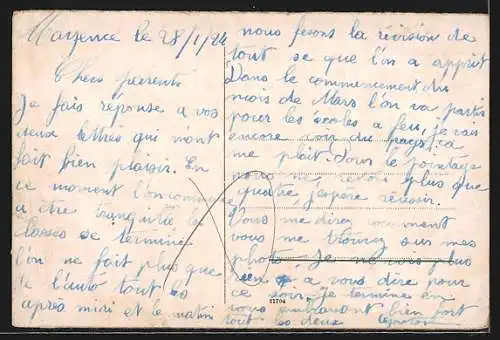 Mayence le 28/1/24
Chers parents
Je fais reponse a vos
deux lettres qui m'ont
fait bien plaisir. En
ce moment l'on commence
a être tranquille la
classes se termine
l'on ne fait plus que
de l'auto tout les
après midi et le matin
nous fesons la révision de
tout se que l'on a apprit
Dans le commencement du
mois de Mars l'on va partir
pour les écoles a feu, je vais
encore voir du pays ça
me plait. Sous le
nous ne restons plus que
quatre j'espère réussir.
Vous me direz comment
vous me trouvez sur mes
photo. Je ne vois plus
rien a vous dire pour
ce soir. Je termine en
vous embrassant bien fort
tout les deux
21704